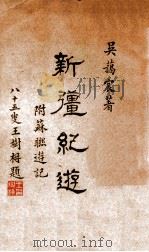 吴蔼宸著
新疆紀遊
附蘇聯遊記
八十五叟王樹枏題